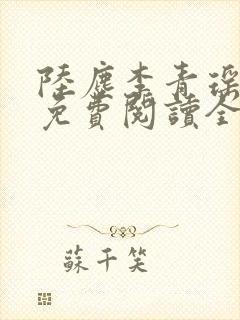 陸塵李青瑤
免費閱讀全
蘇千笑